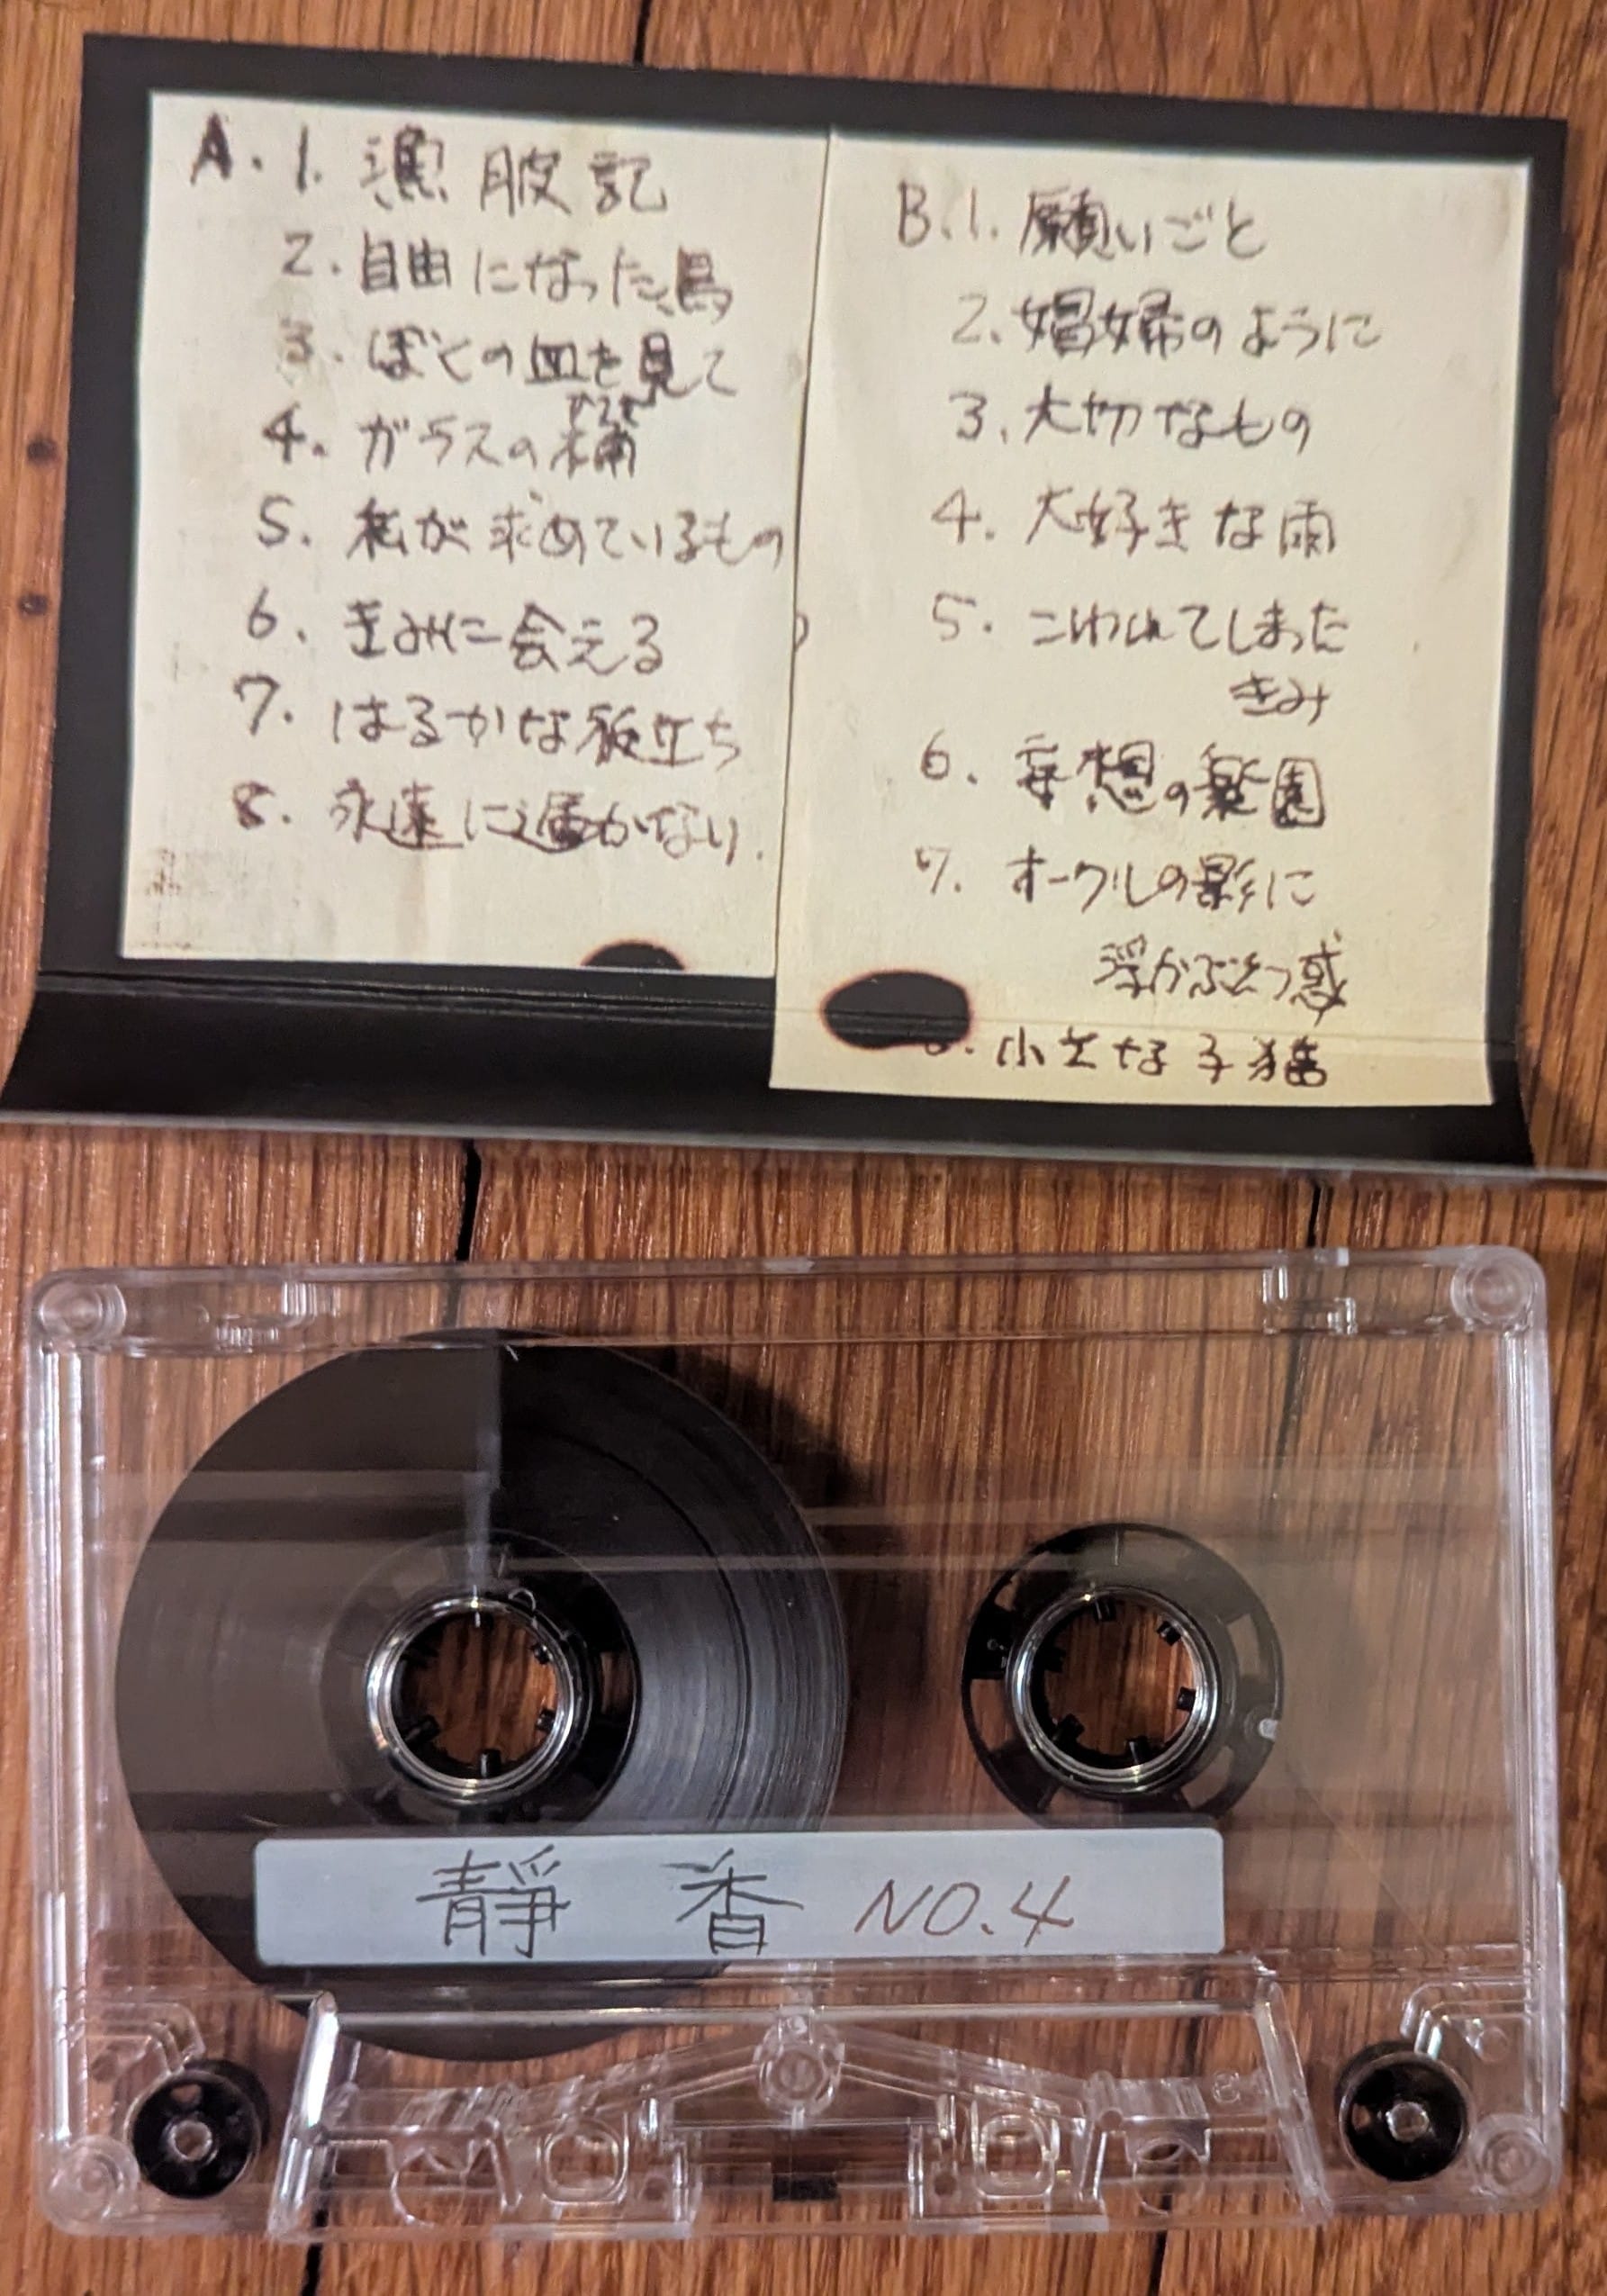 A. 1. 漂 服 記
2. 自由になった鳥
3. ぼくの血を見て
4. ガラスの
5. 私が求めているもの
6. きみに会える
7. はるかな旅立ち
8. 永遠に届かない
B. 1. 願いごと
2. 娼婦のように
3. 大切なもの
4. 大好きな雨
5. こわれてしまった
きみ
6. 妄想の楽園
7. オークルの影に
浮かぶとつ惑
小さな子猫
靜 香 NO.4